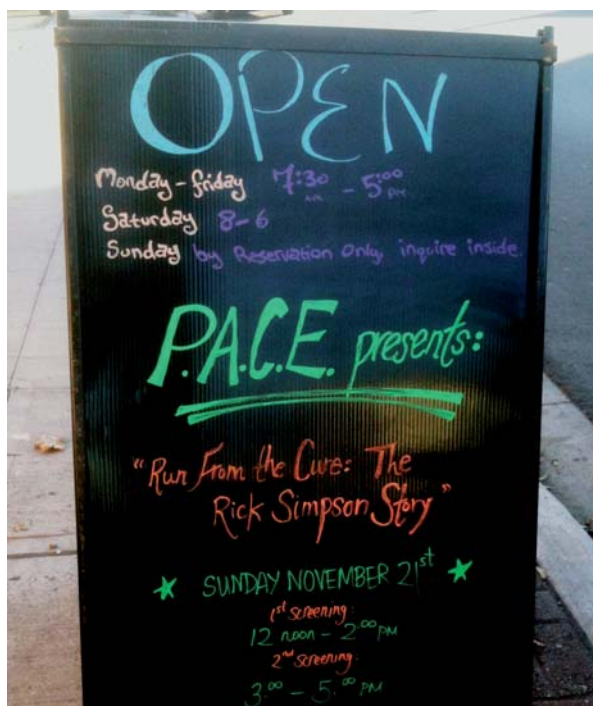 OPEN
Monday - friday 7:30 AM - 5:00 PM
Saturday 8-6
Sunday by Reservation Only, inquire inside.
P.A.C.E. presents:
"Run From the Cure: The
Rick Simpson Story"
SUNDAY NOVEMBER 21st
1st screening:
12 noon - 2:00 PM
2nd screening:
3:00 - 5:00 PM